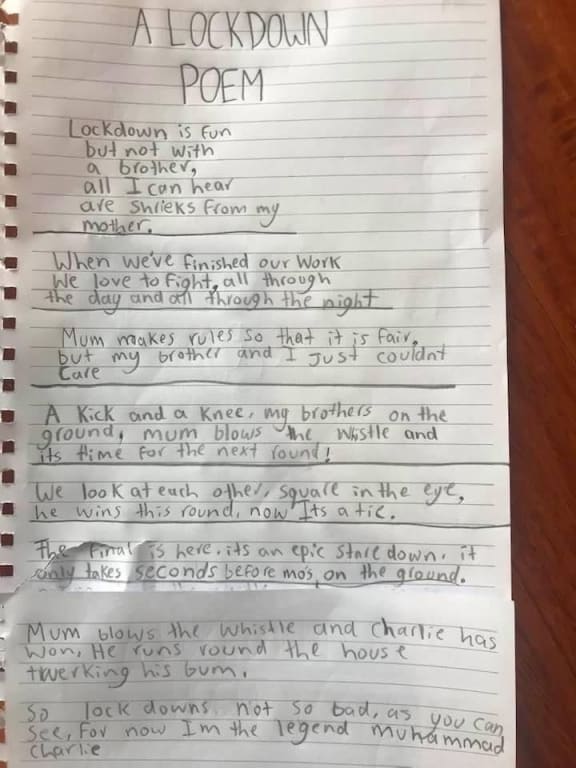 A LOCKDOWN
POEM
Lockdown is fun
but not with
a brother,
all I can hear
are shrieks from my
mother.
When we've finished our work
We love to fight, all through
the day and all through the night
Mum makes rules so that it is fair,
but my brother and I just couldnt
care
A kick and a knee, my brothers on the
ground, mum blows the whistle and
its time for the next round!
We look at each other, square in the eye,
he wins this round, now Its a tie.
The final is here, its an epic stare down, it
only takes seconds before mo's on the ground.
Mum blows the whistle and Charlie has
won, He runs round the house
twerking his bum.
So lock downs not so bad, as you can
see, for now Im the legend muhammad
Charlie